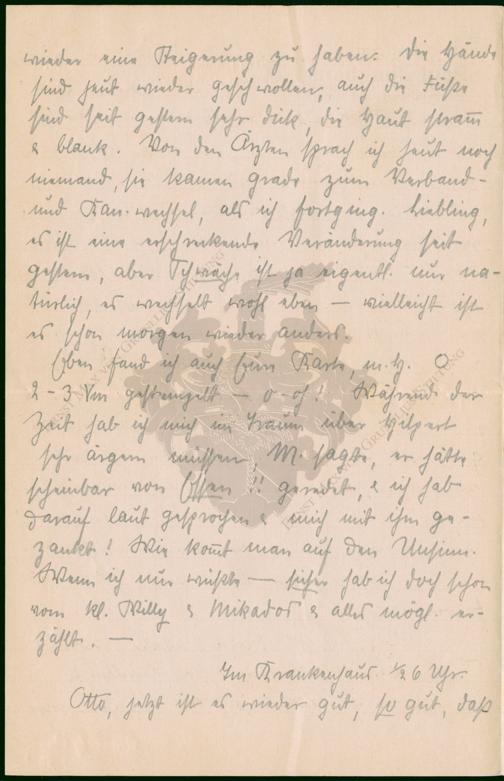 wieder eine Steigerung zu haben. Die Hände
sind heut wieder geschwollen, auch die Füße
sind seit gestern sehr dick, die Haut stram̅
& blank. Von den Ärzten sprach ich heut noch
niemand, sie kamen grade zum Verband-
und Kan. wechsel, als ich fortging. Liebling,
es ist eine erschreckende Veränderung seit
gestern, aber Schwäche ist ja eigentl. nur na-
türlich, es wechselt wohl eben — vielleicht ist
es schon morgen wieder anders.
Eben fand ich auch Eure Karte, m. H.
2 - 3 Vm gestempelt — o - oh! Während der
Zeit hab ich mich im Traum über Hilpert
sehr ärgern müssen, M. sagte, er hätte
scheinbar von Essen!! geredet, & ich hab
darauf laut gesprochen & mich mit ihm ge-
zankt! Wie kom̅t man auf den Unsinn.
Wenn ich nur wüßte — sicher hab ich doch schon
vom kl. Willy & Mikados & alles mögl. er-
zählt. —
Im Krankenhaus ½ 6 Uhr.
Otto, jetzt ist es wieder gut, so gut, daß
ERNST MORITZ
STIFTUNG